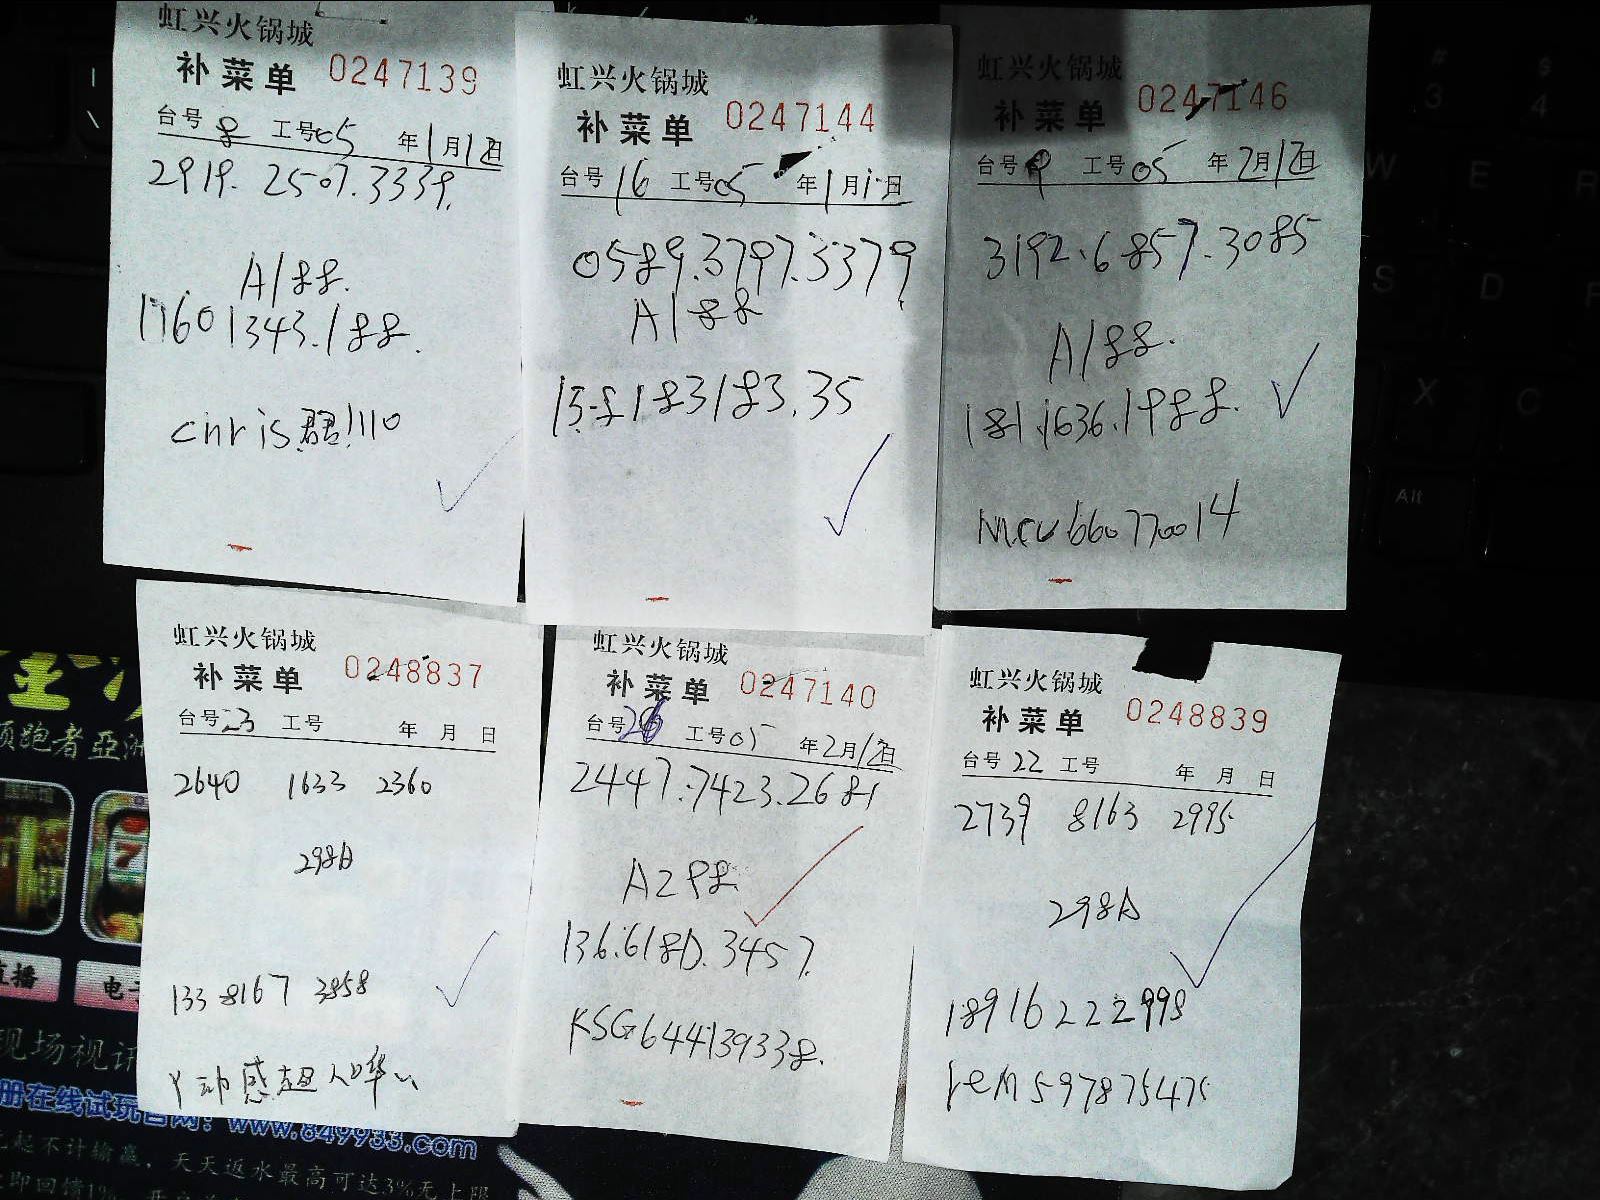 虹兴火锅城
补菜单 0247139
台号 8 工号05 年1月12日
2919. 2507.3339.
A188.
17601343.188.
chris君君!110
虹兴火锅城
补菜单 0247144
台号16 工号05 年1月1日
0589.3797.3379
A188
13818318335
虹兴火锅城
补菜单 0247146
台号9 工号05 年2月12日
3192.6857.3085
A188.
181.1636.1988.
660770014
虹兴火锅城
补菜单 0248837
台号23 工号 年 月 日
2640 1633 2360
298A
133 8167 3858
动感超人哗
虹兴火锅城
补菜单 0247140
台号26 工号05 年2月12日
2447.7423.2681
A298.
136.6180.3457.
KSG644139338.
虹兴火锅城
补菜单 0248839
台号22 工号 年 月 日
2739 8163 2995
298A
18916222998
rem597875475
领跑者亞洲
直播
电
现场视讯
册在线试玩官网：www.849933.com
起不计输赢，天天返水最高可达3%无上限
即回馈1%